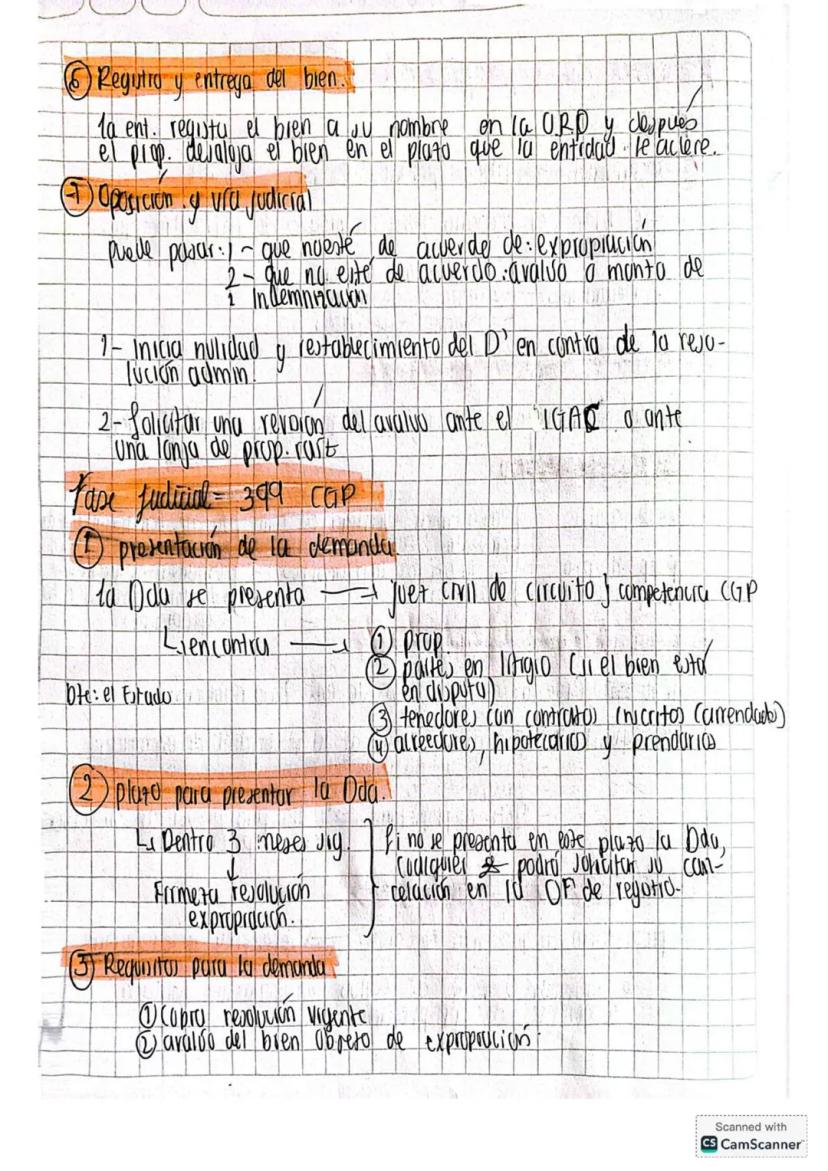 ⑥ Registro y entrega del bien.
la ent. registra el bien a su nombre en la ORP y después
el prop. desaloja el bien en el plazo que la entidad le aclere.
⑦ Oposición y vía judicial
puede pasar: 1 - que no esté de acuerdo de: expropiación
2 - que no esté de acuerdo: avalúo o monto de
Indemnización
1- Inicia nulidad y restablecimiento del D' en contra de la reso-
lución admin.
2- Solicitar una revisión del avaluo ante el IGAC o ante
una lonja de prop. raíz
Fase Judicial = 399 CGP
① presentación de la demanda
la Dda se presenta → juez civil de circuito } competencia CGP
↳ encontra → ① prop.
② partes en litigio (si el bien está
en disputa)
Dte: el Estado
③ tenedores con contratos inscritos (arrendado)
④ acreedores, hipotecarios y prendarios
② plazo para presentar la Dda.
↳ Dentro 3 meses sig. } Si no se presenta en este plazo la Dda,
↓ cualquier podrá solicitar su can-
Firmeza resolución celación en la OF de registro.
expropiación.
③ Requisitos para la demanda
① Copia resolución vigente
② avalúo del bien Objeto de expropiación.
Scanned with
CS CamScanner